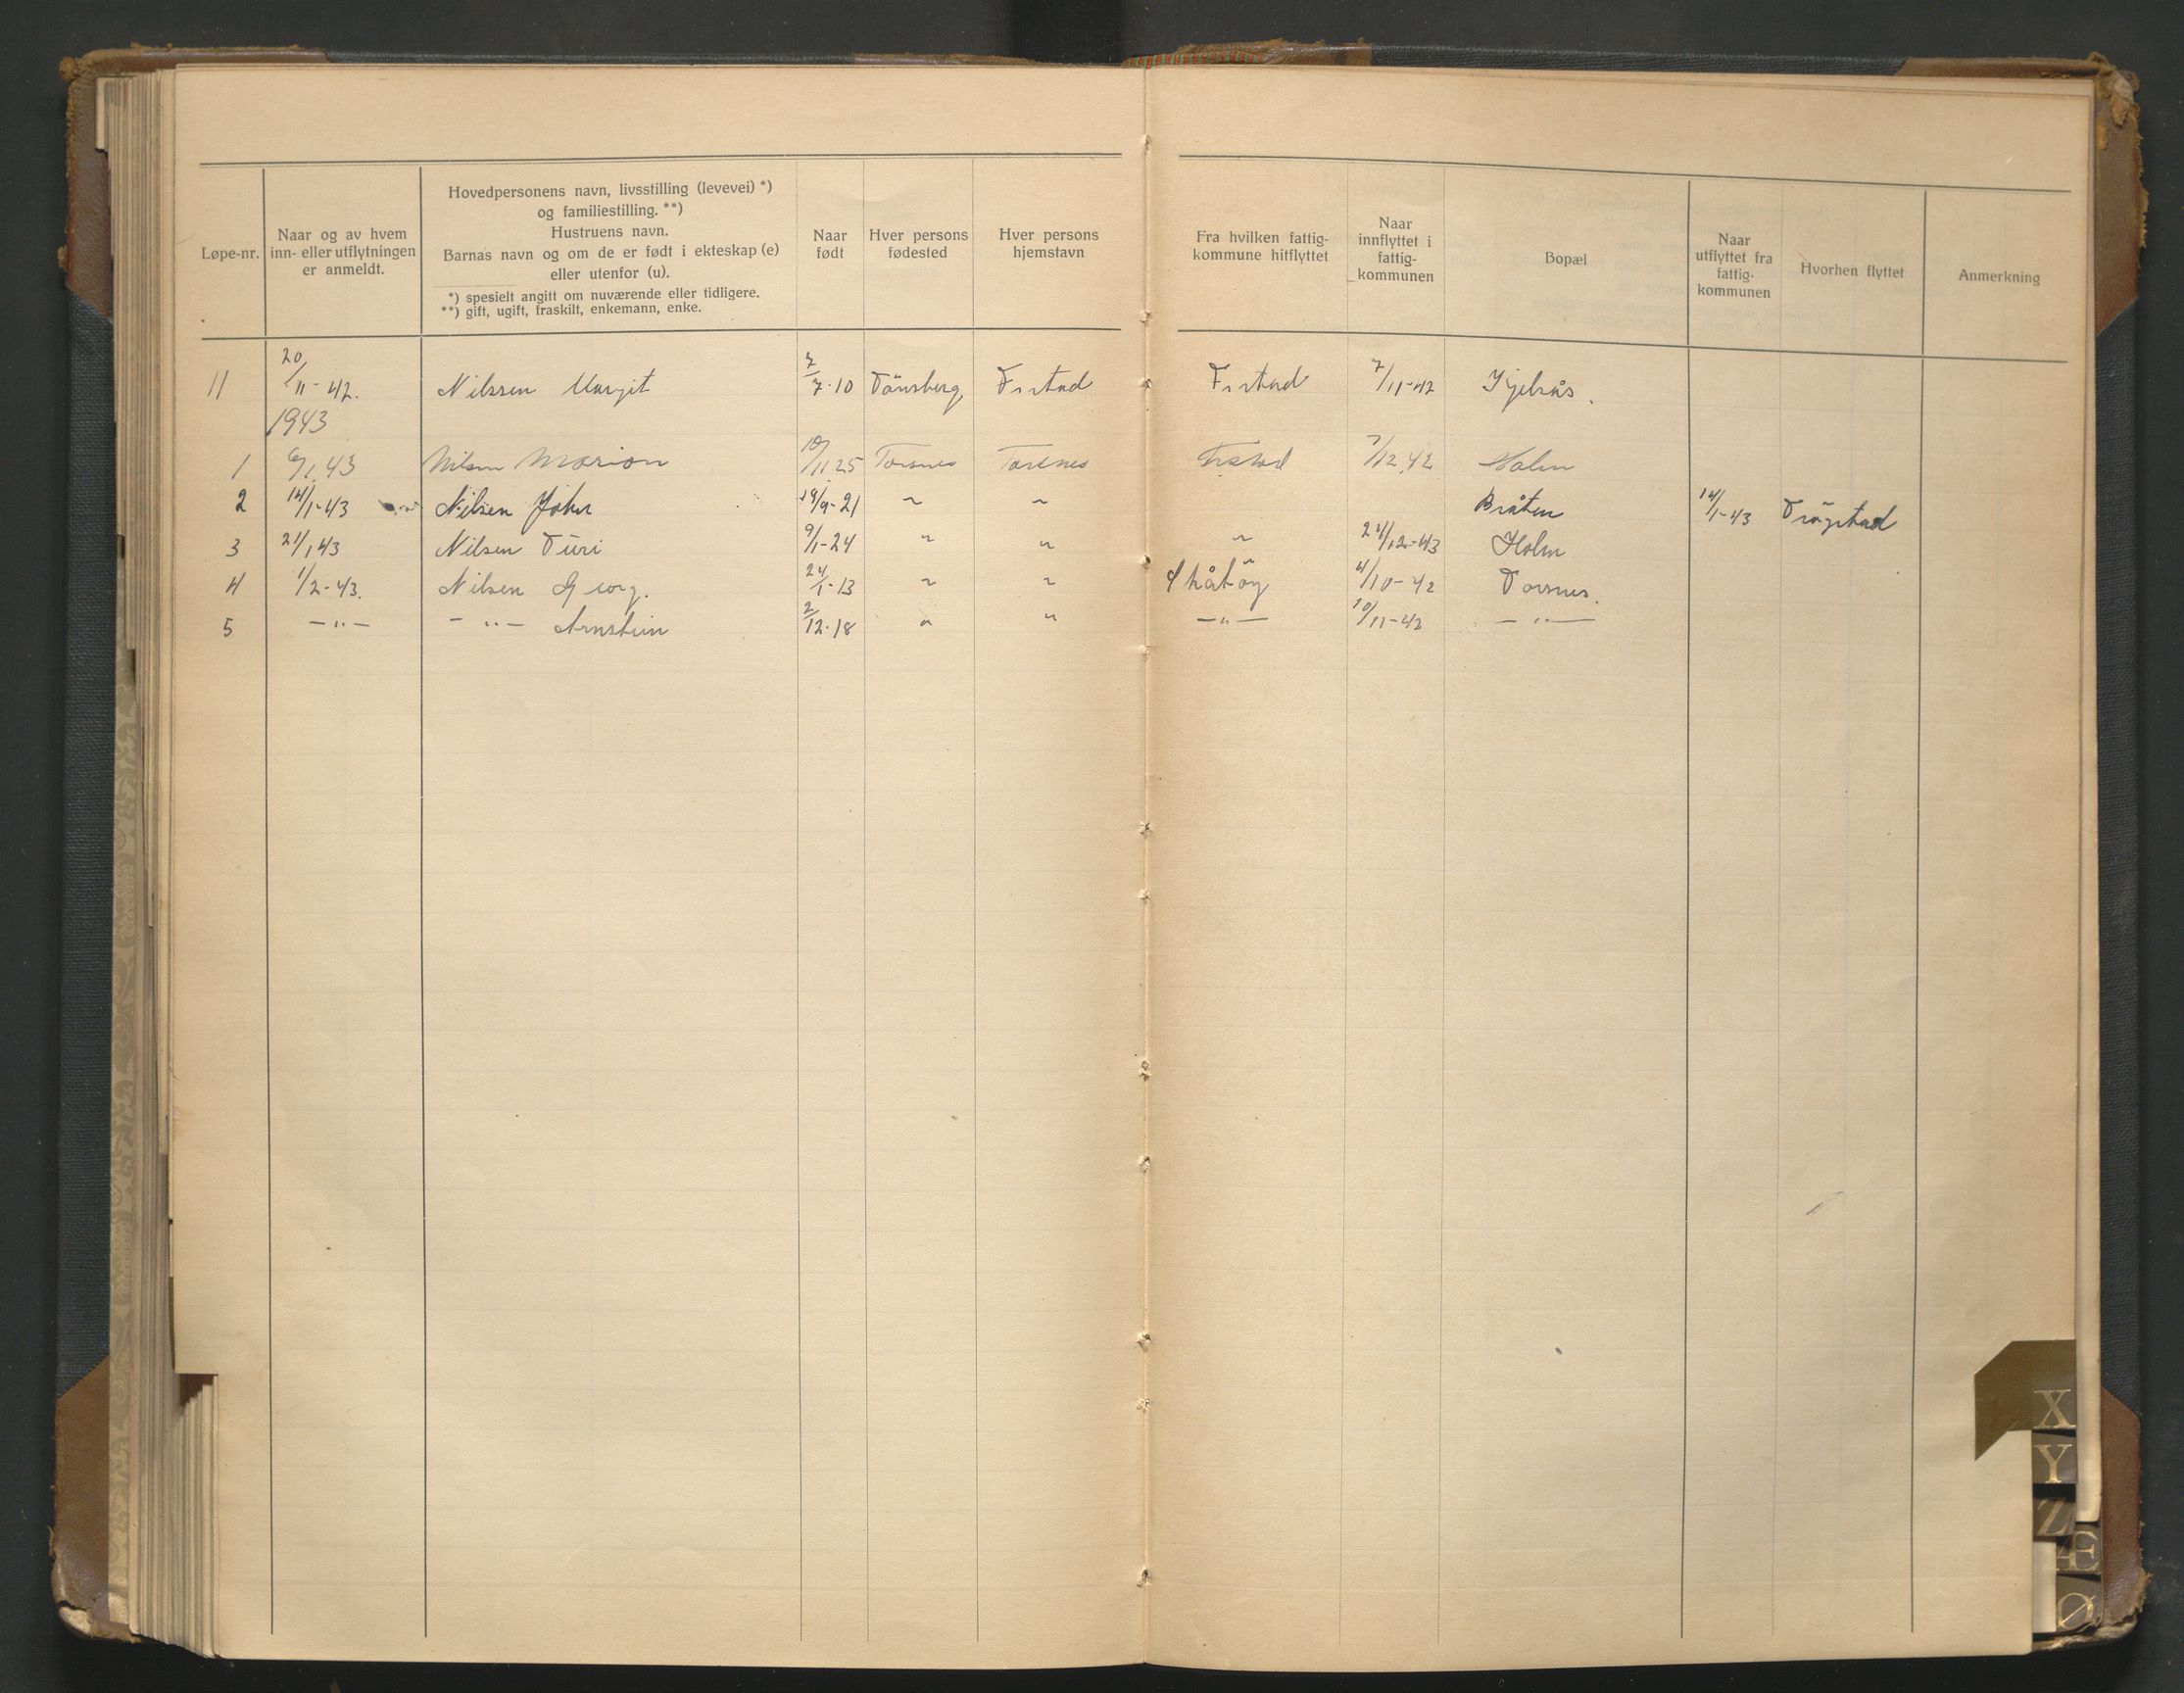 Løpe-nr.
Naar og av hvem
inn- eller utflytningen
er anmeldt.
Hovedpersonens navn, livsstilling (levevei) *)
og familiestilling. **)
Hustruens navn.
Barnas navn og om de er født i ekteskap (e)
eller utenfor (u).
*) spesielt angitt om nuværende eller tidligere.
**) gift, ugift, fraskilt, enkemann, enke.
Naar
født
Hver persons
fødested
Hver persons
hjemstavn
Fra hvilken fattig-
kommune hitflyttet
Naar
innflyttet i
fattig-
kommunen
Bopæl
Naar
utflyttet fra
fattig-
kommunen
Hvorhen flyttet
Anmerkning
11 20/11-42. Nilssen Margit 7/7-10 Tönsberg Frstad Frstad 7/11-42 Kjelsås.
1943
1 6/1.43 Nilsen Marion 10/11 25 Torsnes Torsnes Frstad 7/12.42 Holm
2 14/1-43 Nilsen John 29/9-21 " " Bråten 14/1-43 Trögstad
3 21/1 43 Nilsen Turi 9/1-24 " " " 21/12-43 Holm
4 1/2-43. Nilsen Georg. 24/1-13 " " Skåtöy 4/10-42 Torsnes.
5 -"- -"- Arnstein 2/12-18 " " -"- 10/11-42 -"-
X
Y
Z
Æ
Ø